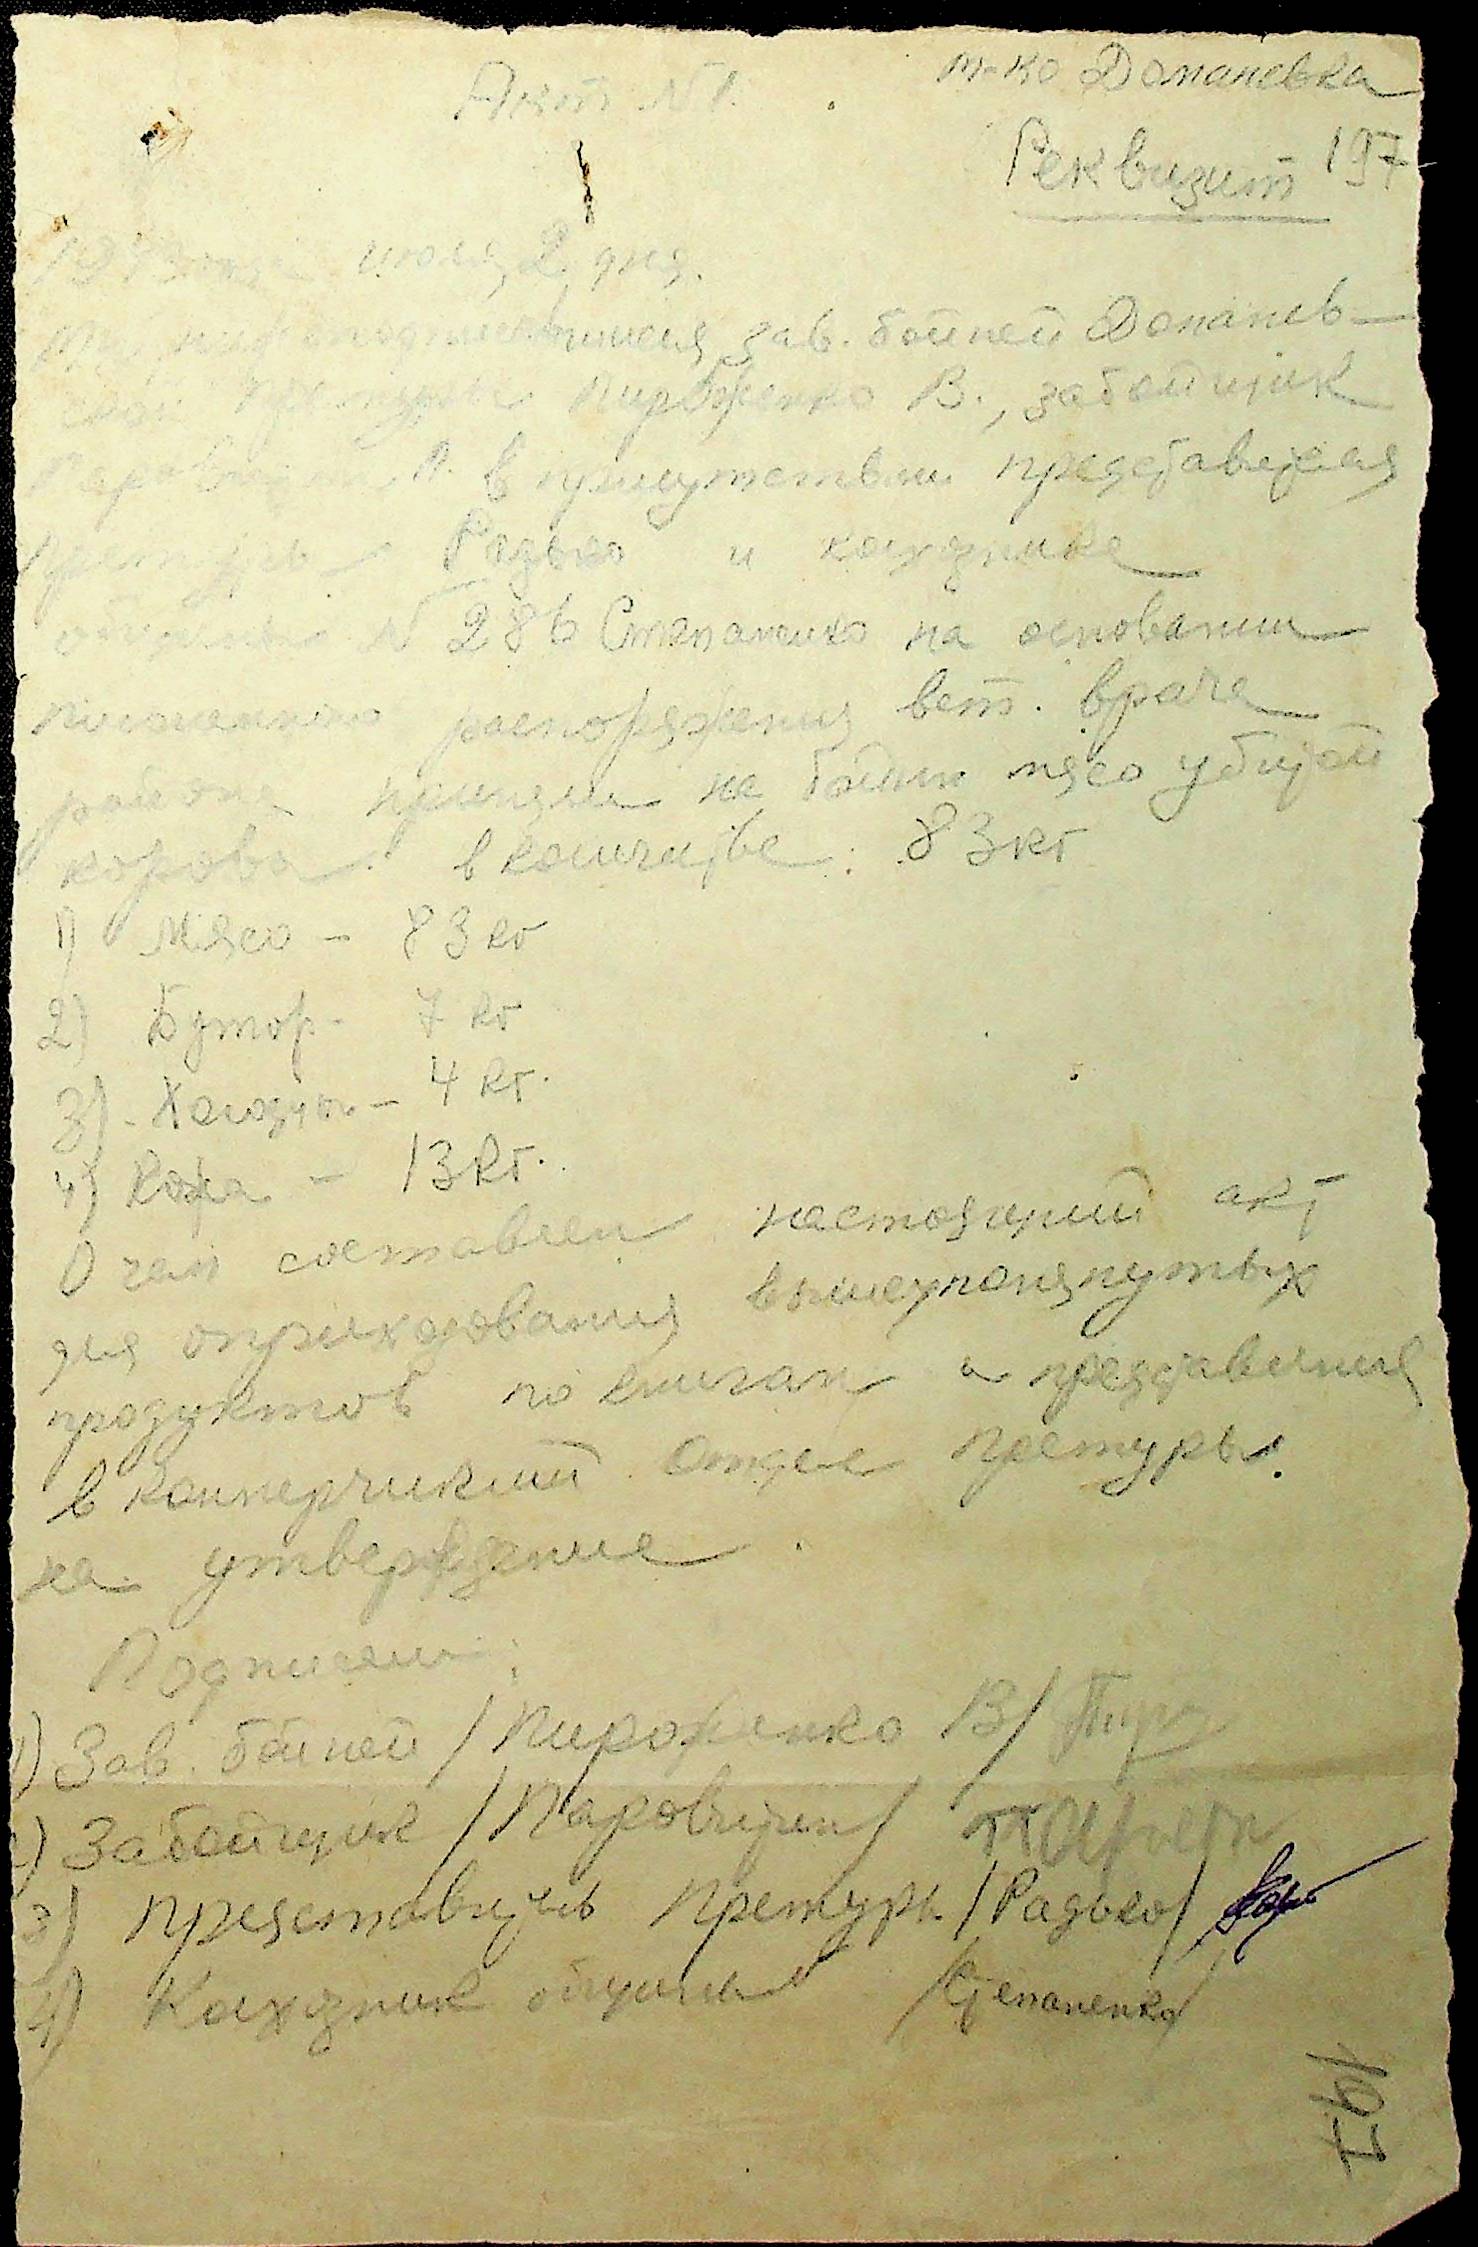 Акт №1.
м-ко Доманевка
Реквизит 197
1943 года июля 2 дня.
Мы нижеподписавшиеся зав. бойней Доманев-
ской Претуры Пироженко В., забойщик
в присутствии представителя
Претуры Радько и колхозника
общины № 286 Степаненко на основании
письменного распоряжения вет. врача
района приняли на бойню мясо убитой
корова в количестве: 83 кг
1) Мясо - 83 кг
2) Бутор - 7 кг
3) - 4 кг.
4) Кожа - 13 кг.
О чем составлен настоящий акт
для оприходования вышеупомянутых
продуктов по книгам и представления
в коммерческий отдел Претуры
на утверждение.
Подписали:
1) Зав. бойней /Пироженко В/
2) Забойщик
3) Представитель Претуры /Радько/
4) Колхозник общины /Степаненко/
197